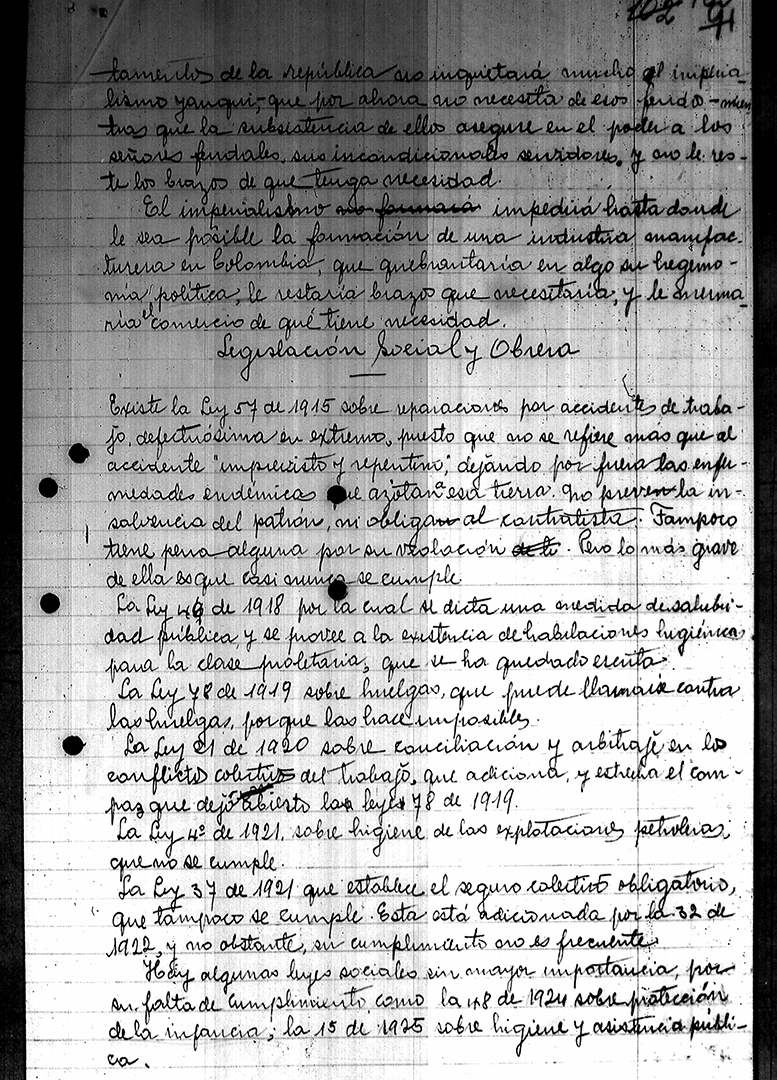 102
91
tamentos de la república no inquietará mucho al imperia-
lismo yanqui,-que por ahora no necesita de esos feudo-mien
tras que la subsistencia de ellos asegure en el poder a los
señores feudales, sus incondicionales servidores, y no le res-
te los brazos de que tenga necesidad.
El imperialismo no formará impedirá hasta donde
le sea posible la formación de una industria manufac-
turera en Colombia, que quebrantaría en algo su hegemo-
nía política, le restaría brazos que necesitaría, y le merma-
ría el comercio de qué tiene necesidad.
Legislación Social y Obrera
Existe la Ley 57 de 1915 sobre reparaciones por accidentes de traba-
jo, defectuósima en extremo, puesto que no se refiere más que al
accidente "imprevisto y repentino," dejándo por fuera las enfer-
medades endémicas que azotan esa tierra. No preven la in-
solvencia del patrón, ni obligan al contratista. Tampoco
tiene pena alguna por su violación de la. Pero lo más grave
de ella es que casi nunca se cumple.
La Ley 46 de 1918 por la cual se dicta una medida de salubri-
dad pública y se provee a la existencia de habitaciones higiénicas
para la clase proletaria, que se ha quedado escrita.
La Ley 78 de 1919 sobre huelgas, que puede llamarse contra
las huelgas, porque las hace imposibles.
La Ley 21 de 1920 sobre conciliación y arbitraje en los
conflictos colectivos del trabajo, que adiciona, y estrecha el com-
pas que dejó abierto la ley 78 de 1919.
La Ley 4ª de 1921, sobre higiene de las explotaciones petroleras,
que no se cumple.
La Ley 37 de 1921 que establece el seguro colectivo obligatorio,
que tampoco se cumple. Esta está adicionada por la 32 de
1922, y no obstante, su cumplimiento no es frecuente.
Hay algunas leyes sociales sin mayor importancia, por
su falta de cumplimiento como la 48 de 1924 sobre protección
de la infancia; la 15 de 1925 sobre higiene y asistencia públi-
ca.